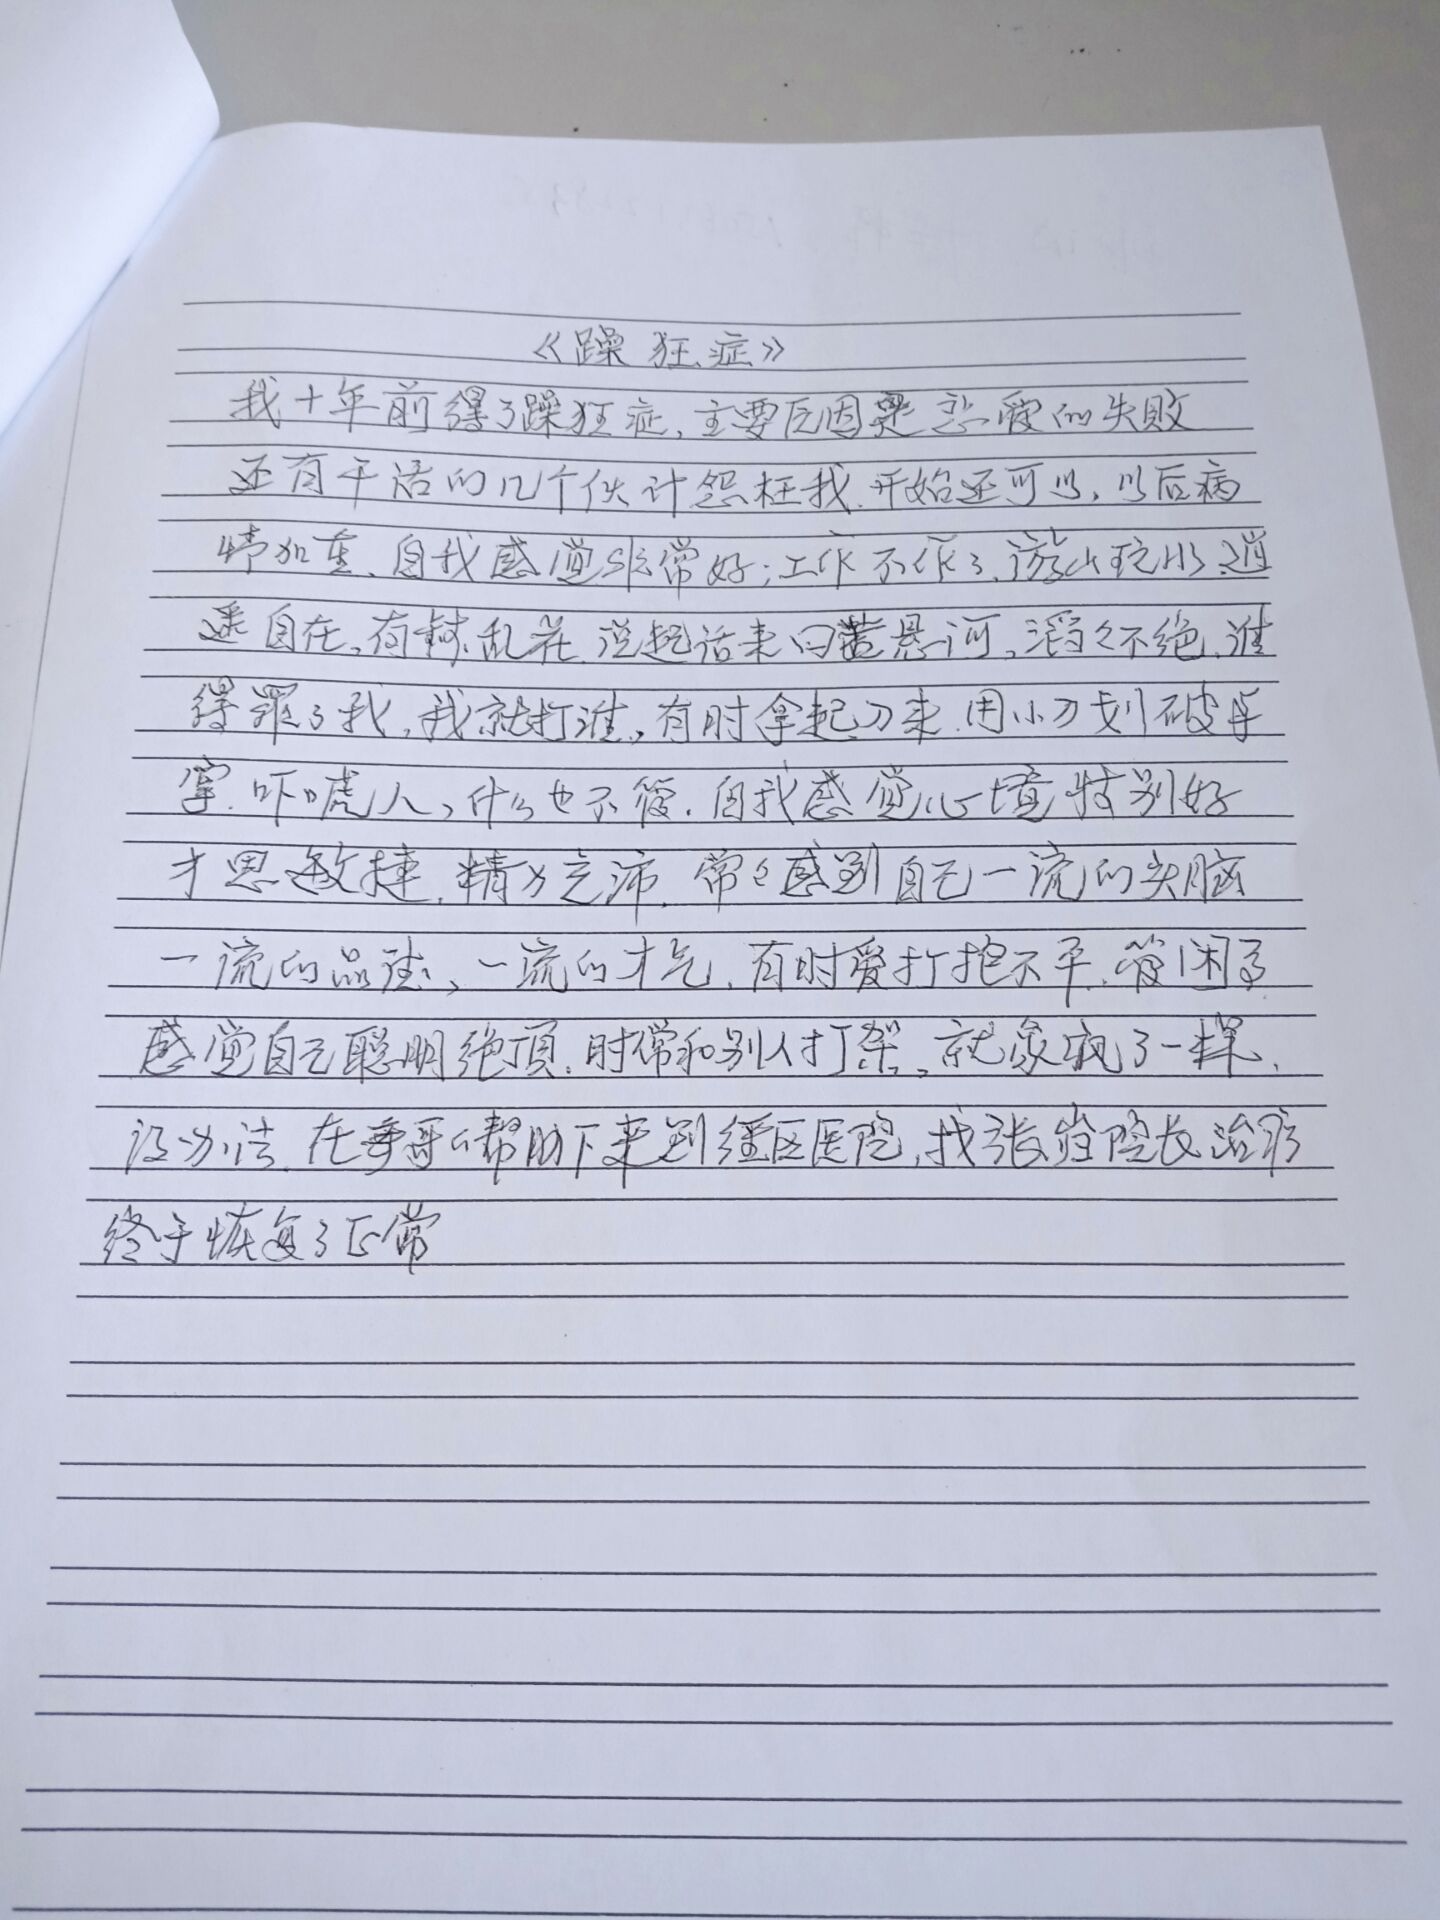 《躁狂症》
我十年前得了躁狂症，主要原因是恋爱的失败
还有干活的几个伙计怨枉我，开始还可以，以后病
情加重、自我感觉非常好；工作不作了、游山玩水、逍
遥自在，有钱乱花，说起话来口若悬河，滔滔不绝，谁
得罪了我，我就打谁，有时拿起刀来，用小刀划破手
掌，吓唬人，什么也不管，自我感觉心境特别好
才思敏捷，精力充沛，常常感到自己一流的头脑
一流的品德，一流的才气，有时爱打抱不平，管闲事
感觉自己聪明绝顶，时常和别人打架，就象疯了一样，
没办法，在哥哥的帮助下来到经区医院，找张院长治疗
终于恢复了正常